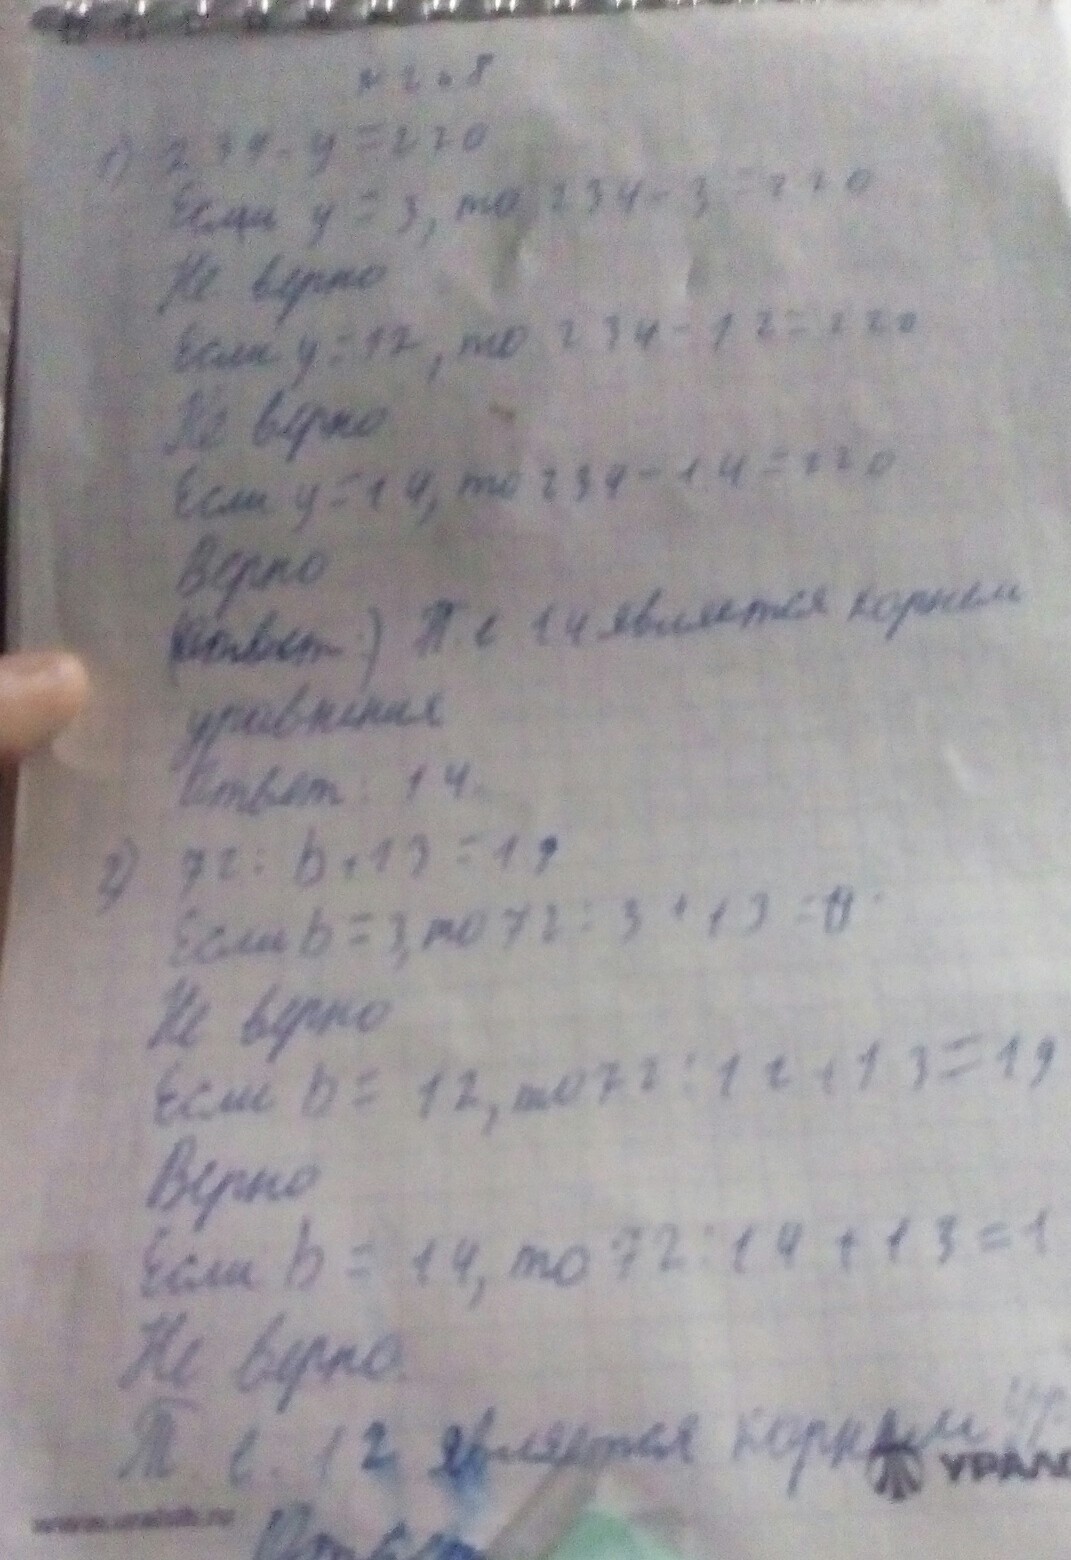 1) 234 - y = 220
Если y = 3, то 234 - 3 = 220
Не верно
Если y = 12, то 234 - 12 = 220
Не верно
Если y = 14, то 234 - 14 = 220
Верно
Т. е 14 является корнем
уравнения
Ответ: 14.
2) 72 : b + 13 = 19
Если b = 3, то 72 : 3 + 13 =
Не верно
Если b = 12, то 72 : 12 + 13 = 19
Верно
Если b = 14, то 72 : 14 + 13 = 1
Не верно.
Т. е. 12 является корнем
УРАЛС
Ответ